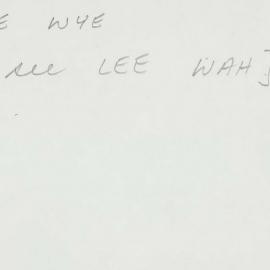 E WYE
see LEE WAH]